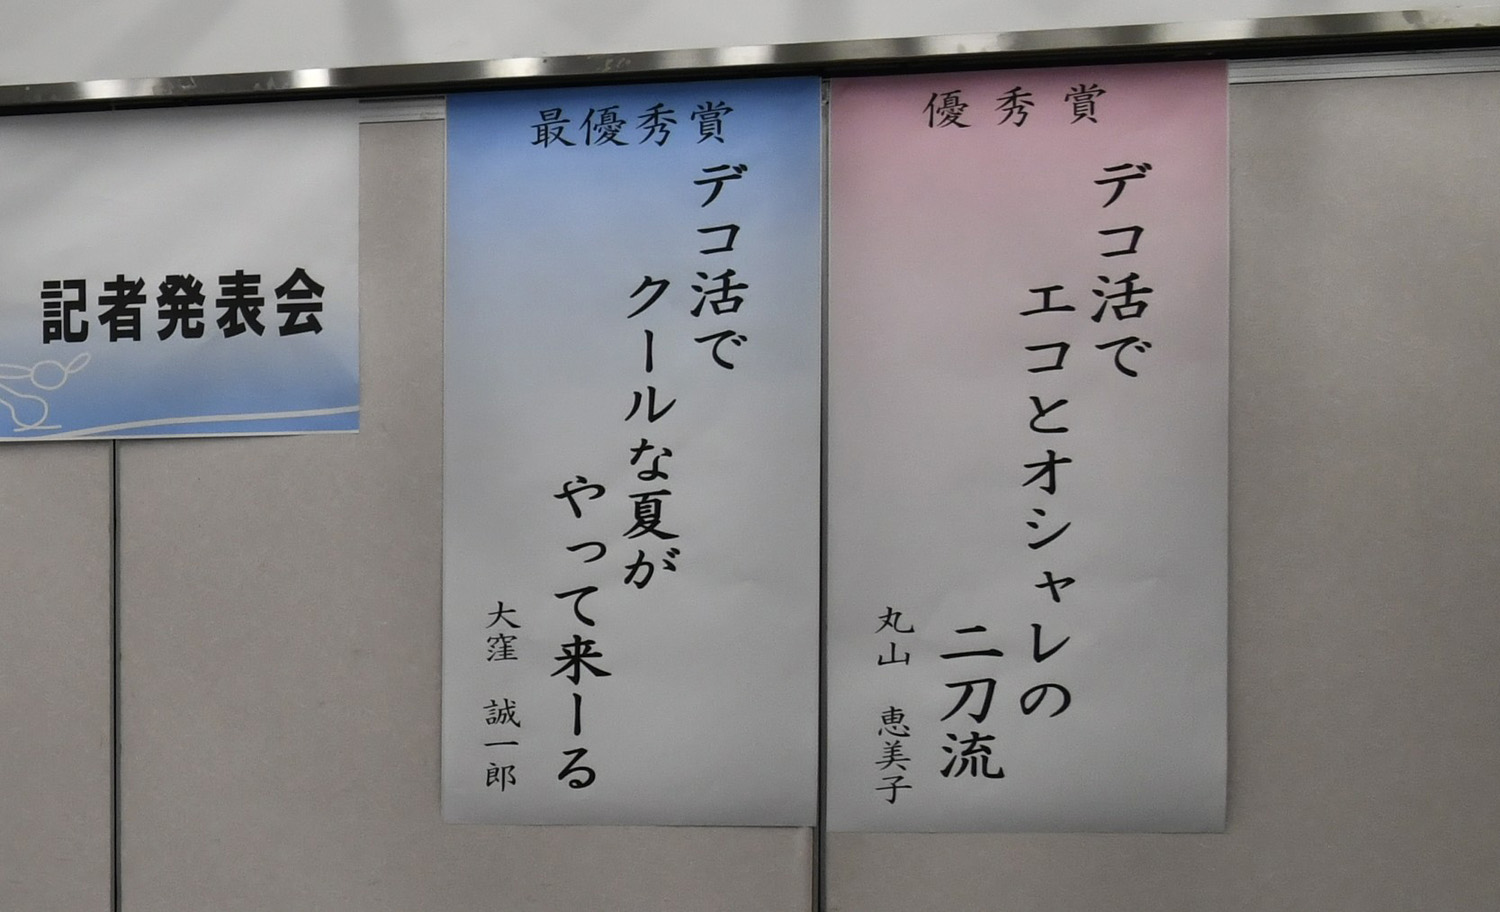 記者発表会
最優秀賞
デコ活で
クールな夏が
やって来ーる
大窪 誠一郎
優秀賞
デコ活で
エコとオシャレの
二刀流
丸山 恵美子